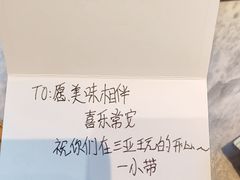 TO:愿美味相伴
喜乐常宜
祝你们在三亚玩的开心~
一小带